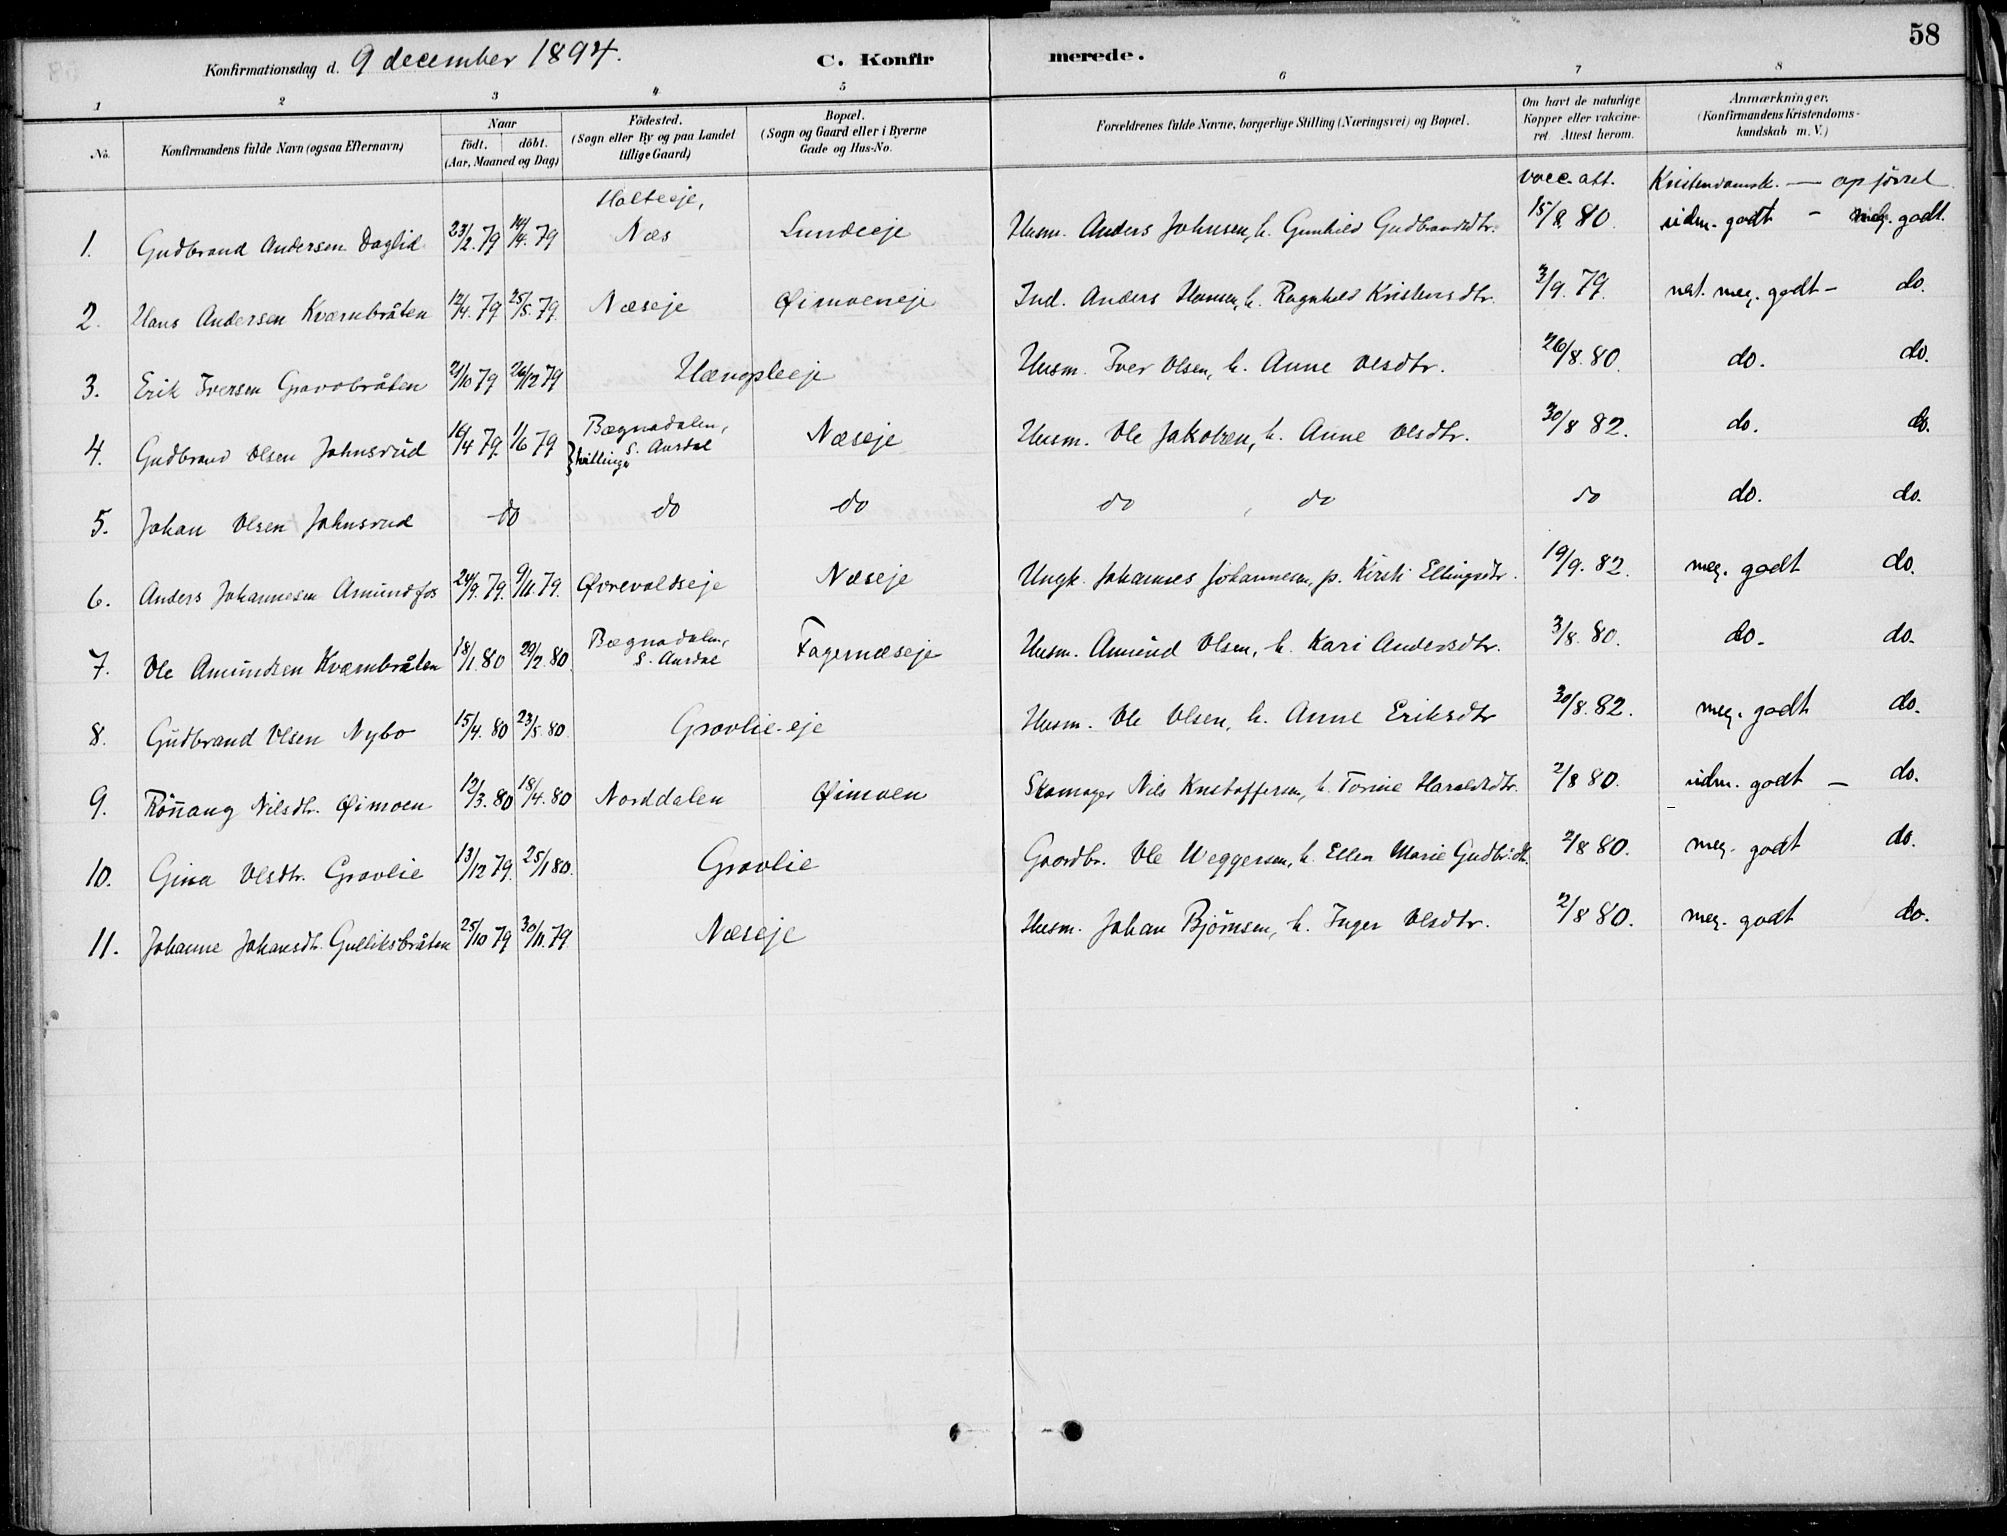 58
Konfirmationsdag d. 9 december 1894. C. Konfirmerede.
1 2 3 4 5 6 7 8
No. Konfirmandens fulde Navn (ogsaa Efternavn) Naar födt. döbt. (Aar, Maaned og Dag) Födested. (Sogn eller By og paa Landet tillige Gaard) Bopæl. (Sogn og Gaard eller i Byerne Gade og Hus-No. Forældrenes fulde Navne, borgerlige Stilling (Næringsvei) og Bopæl. Om havt de naturlige Kopper eller vakcineret. Attest herom. Anmærkninger. (Konfirmandens Kristendomskundskab m. V.)
vacc. att. Kristendomsk. — opførsel
1. Gudbrand Andersen Daglid 23/2. 79 14/4. 79 Holteeje, Næs Lundeeje Husm. Anders Johnsen, h. Gunhild Gudbrandsdtr. 15/8. 80. udm. godt - meg. godt.
2. Hans Andersen Kværnbråten 12/4. 79 25/5. 79. Næseje Øimoeneje Ind. Anders Hansen, h. Ragnhild Kristensdtr. 3/9. 79. nest. meg. godt - do.
3. Erik Iversen Gravobråten 2/10 79 26/12 79 Hængsleeje Husm. Iver Olsen, h. Anne Olsdtr. 26/8. 80. do. do.
4. Gudbrand Olsen Johnsrud 16/4 79. 1/6 79 } tvillinger Bægnadalen, S. Aurdal Næseje Husm. Ole Jakobsen, h. Anne Olsdtr. 30/8 82. do. do.
5. Johan Olsen Johnsrud do do do do do do do. do.
6. Anders Johannesen Amundfos 24/9. 79. 9/11. 79. Øvrevoldseje Næseje Ungk. Johannes Johannesen, p. Kirsti Ellingsdtr. 19/9. 82. meg. godt do.
7. Ole Amundsen Kværnbråten 18/1. 80 29/2. 80. Bægnadalen, S. Aurdal Fagernæseje Husm. Amund Olsen, h. Kari Andersdtr. 3/8. 80. do. do.
8. Gudbrand Olsen Nybo 15/4. 80 23/5. 80. Gravlie-eje Husm. Ole Olsen, h. Anne Eriksdtr 30/8. 82. meg. godt do.
9. Rönnang Nilsdtr. Øimoen 12/3. 80 18/4. 80 Norddalen Øimoen Skomager Nils Kristoffersen, h. Torine Haraldsdtr. 2/8 80. udm. godt — do.
10. Gina Olsdtr. Gravlie 13/12 79. 25/1 80. Gravlie Gaardbr. Ole Weggersen, h. Ellen Marie Gudbr.dtr. 2/8 80. meg. godt do.
11. Johanne Johansdtr. Gulliksbråten 25/10 79 30/11. 79 Næseje Husm. Johan Bjørnsen, h. Inger Olsdtr. 2/8 80. meg. godt do.